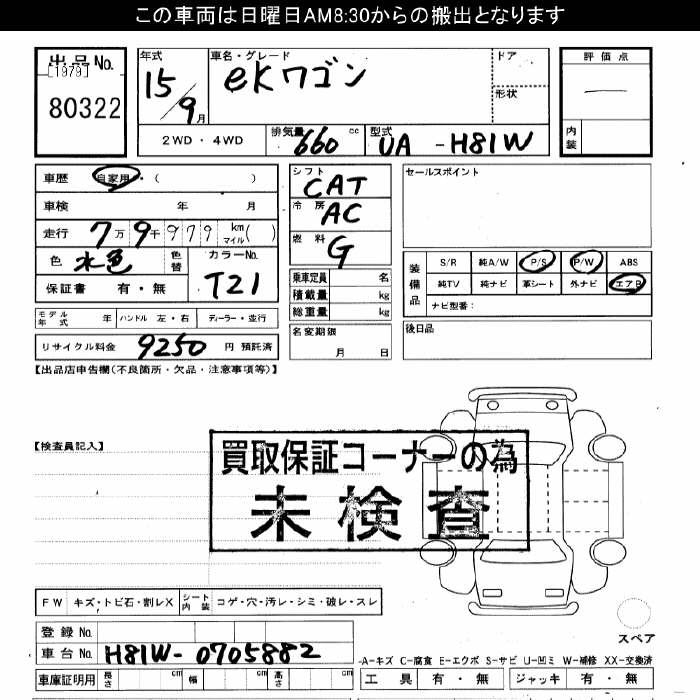 この車両は日曜日AM8:30からの搬出となります
出品No.
[1979]
80322
年式
15/9月
車名・グレード
eKワゴン
ドア
形状
評価点
内装
2WD・4WD
排気量 660 cc
型式 UA-H81W
車歴 自家用・( )
車検 年 月
走行 7万9千979 km マイル( )
色 水色 色替
カラーNo. T21
保証書 有・無
シフト CAT
冷房 AC
燃料 G
乗車定員 名
積載量 kg
総重量 kg
名変期限
月 日
セールスポイント
装備品
S/R 純A/W P/S P/W ABS
純TV 純ナビ 革シート 外ナビ エアB
ナビ型番:
後日品
モデル年式 年 ハンドル 左・右 ディーラー・並行
リサイクル料金 9250 円 預託済
【出品店申告欄(不良箇所・欠品・注意事項等)】
【検査員記入】
買取保証コーナーの為
未検査
FW キズ・トビ石・割レX シート内装 コゲ・穴・汚レ・シミ・破レ・スレ
スペア
登録No.
車台No. H81W-0705882
車庫証明用 長さ cm 幅 cm 高さ cm
-A-キズ C-腐食 E-エクボ S-サビ U-凹ミ W-補修 XX-交換済
工具 有・無 ジャッキ 有・無